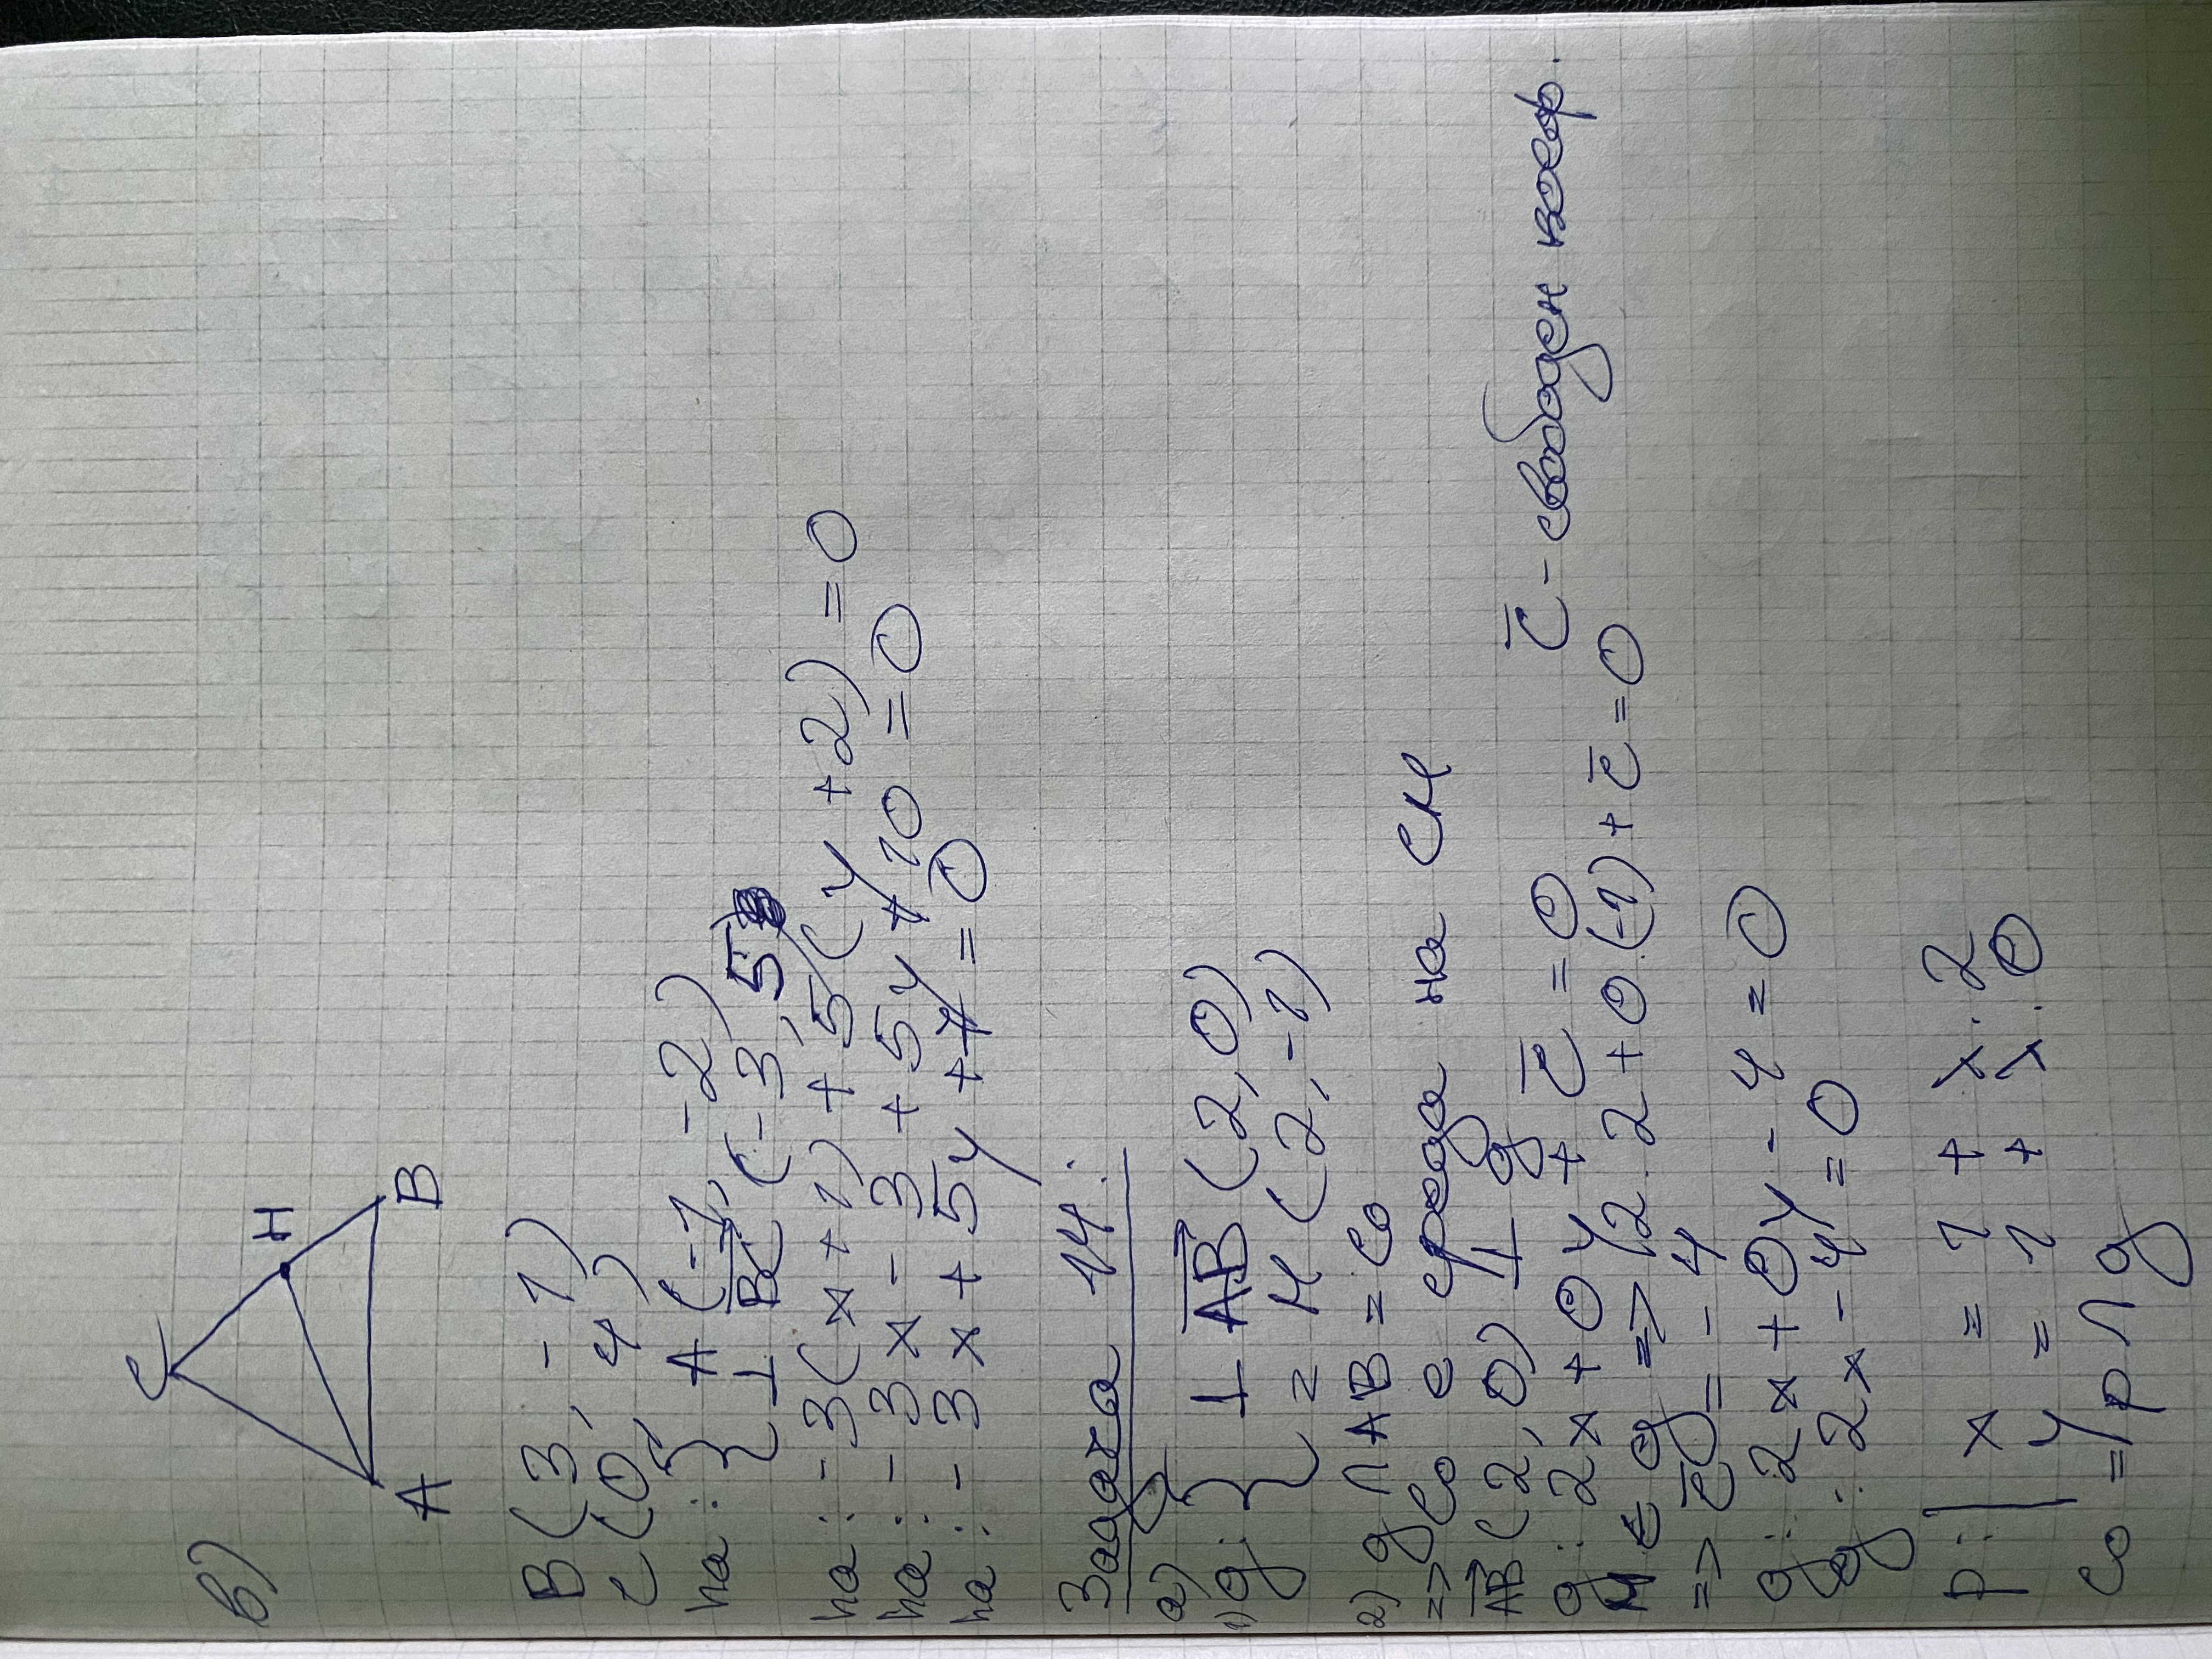 в)
C
H
A B
B(3, -1)
C(0, 4)
ha: { A(-1, -2)
⊥ BC (-3, 5)
ha: -3(x+1) + 5(y+2) = 0
ha: -3x - 3 + 5y + 10 = 0
ha: -3x + 5y + 7 = 0
Задача 14:
а)
1) g: { ⊥ AB (2, 0)
= M (2, -1)
2) g ∩ AB = C₀
=> C₀ е среда на CM
AB (2, 0) ⊥ g
g: 2x + 0y + C̄ = 0 C̄ - свободен коеф.
M ∈ g => 2.2 + 0.(-1) + C̄ = 0
=> C̄ = -4
g: 2x + 0y - 4 = 0
g: 2x - 4 = 0
p: | x = 1 + λ.2
y = 1 + λ.0
C₀ = p ∩ g